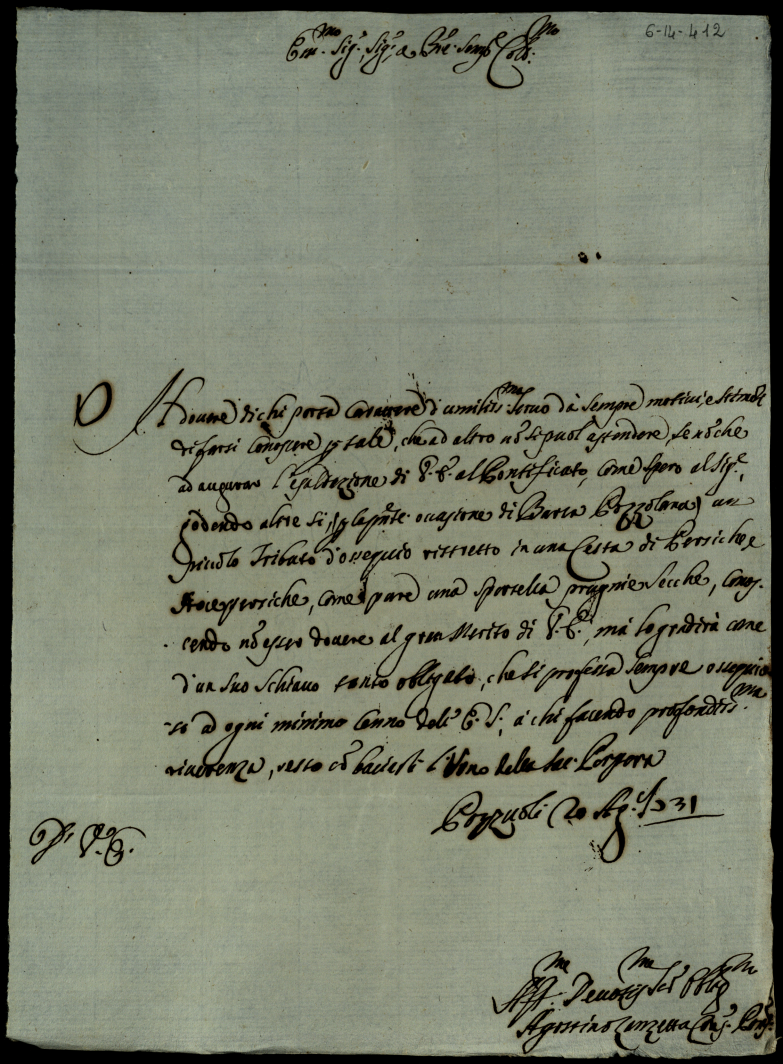 6-14-412
Em.mo Sig.r, Sig.r e Pne Semp. Col.mo
Il dovere di chi porta Carattere d'umiliss.mo Servo dà Sempre motivi, e Stimoli
di farsi Conoscere p tale, che ad altro nō si puol' ascondere, se nō che
ad augurar l'esaltazione di V. E. al Pontificato, Come spero al Sig.e,
godendo altre si, p la pnte occasione di Barca Pozzolana, un
piccolo Tributo d'ossequio ristretto in una Cesta di Persiche, e
Noce persiche, Come pure una Sportella prugnie Secche, Conos-
cendo nō esser dovere al gran Merito di V. E., mà lo gradirà come
d'un Suo Schiavo tanto obligato, che Si professa Sempre ossequio
-so ad ogni minimo Cenno dell' E. S., à chi facendo profondiss.ma
riverenza, resto cō baciarli l'... della Sac. Porpora
Pozzuoli 20 Ag. 1731
Di V. E.
Aff.mo Devotiss.mo Ser Oblig.mo
Agostino